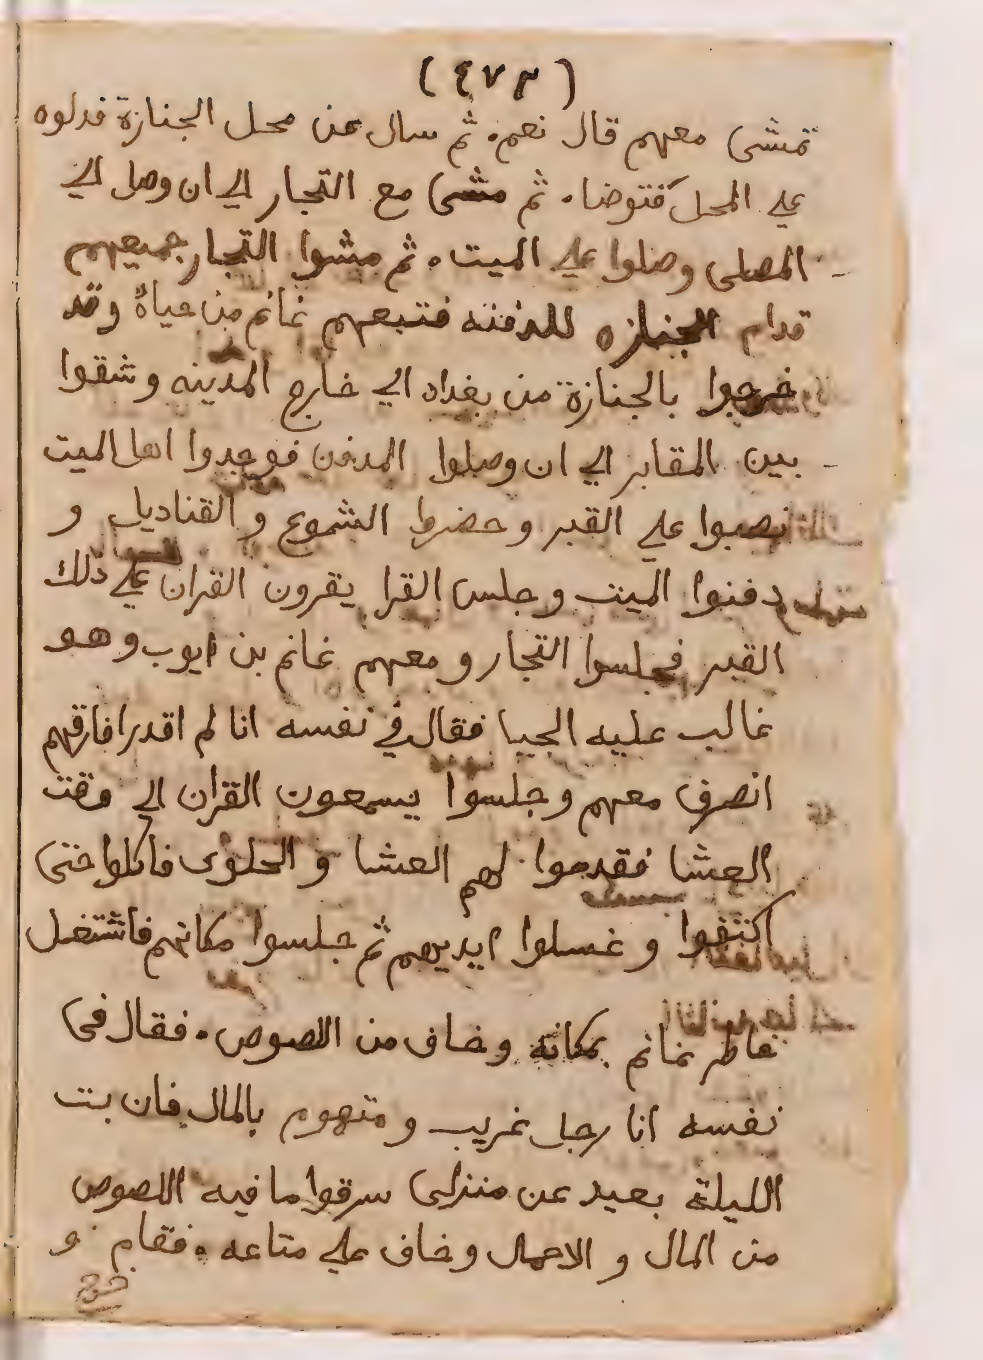 (٤٧٣)
تمشى معهم قال نعم. ثم سال عن محل الجنازة فدلوه
علي المحل فتوضا. ثم مشى مع التجار الي ان وصل الي
المصلى وصلوا علي الميت. ثم مشوا التجار جميعهم
قدام الجنازه للدفنه فتبعهم غانم من حياه وقد
خرجوا بالجنازة من بغداد الي خارج المدينه وشقوا
بين المقابر الي ان وصلوا المدفن فوجدوا اهل الميت
نصبوا علي القبر وحضروا الشموع و القناديل و
دفنوا الميت وجلس القرا يقرون القران علي ذلك
القبر فجلسوا التجار و معهم غانم بن ايوب وهو
غالب عليه الحيا فقال في نفسه انا لم اقدر افارقهم
انصرف معهم وجلسوا يسمعون القران الي وقت
العشا فقدموا لهم العشا و الحلوى فاكلوا حتى
اكتفوا و غسلوا ايديهم ثم جلسوا مكانهم فاشتغل
خاطر غانم بمكانه وخاف من اللصوص. فقال في
نفسه انا رجل غريب و متهوم بالمال فان بت
الليلة بعيد عن منزلي سرقوا ما فيه اللصوص
من المال و الاحمال وخاف علي متاعه. فقام و